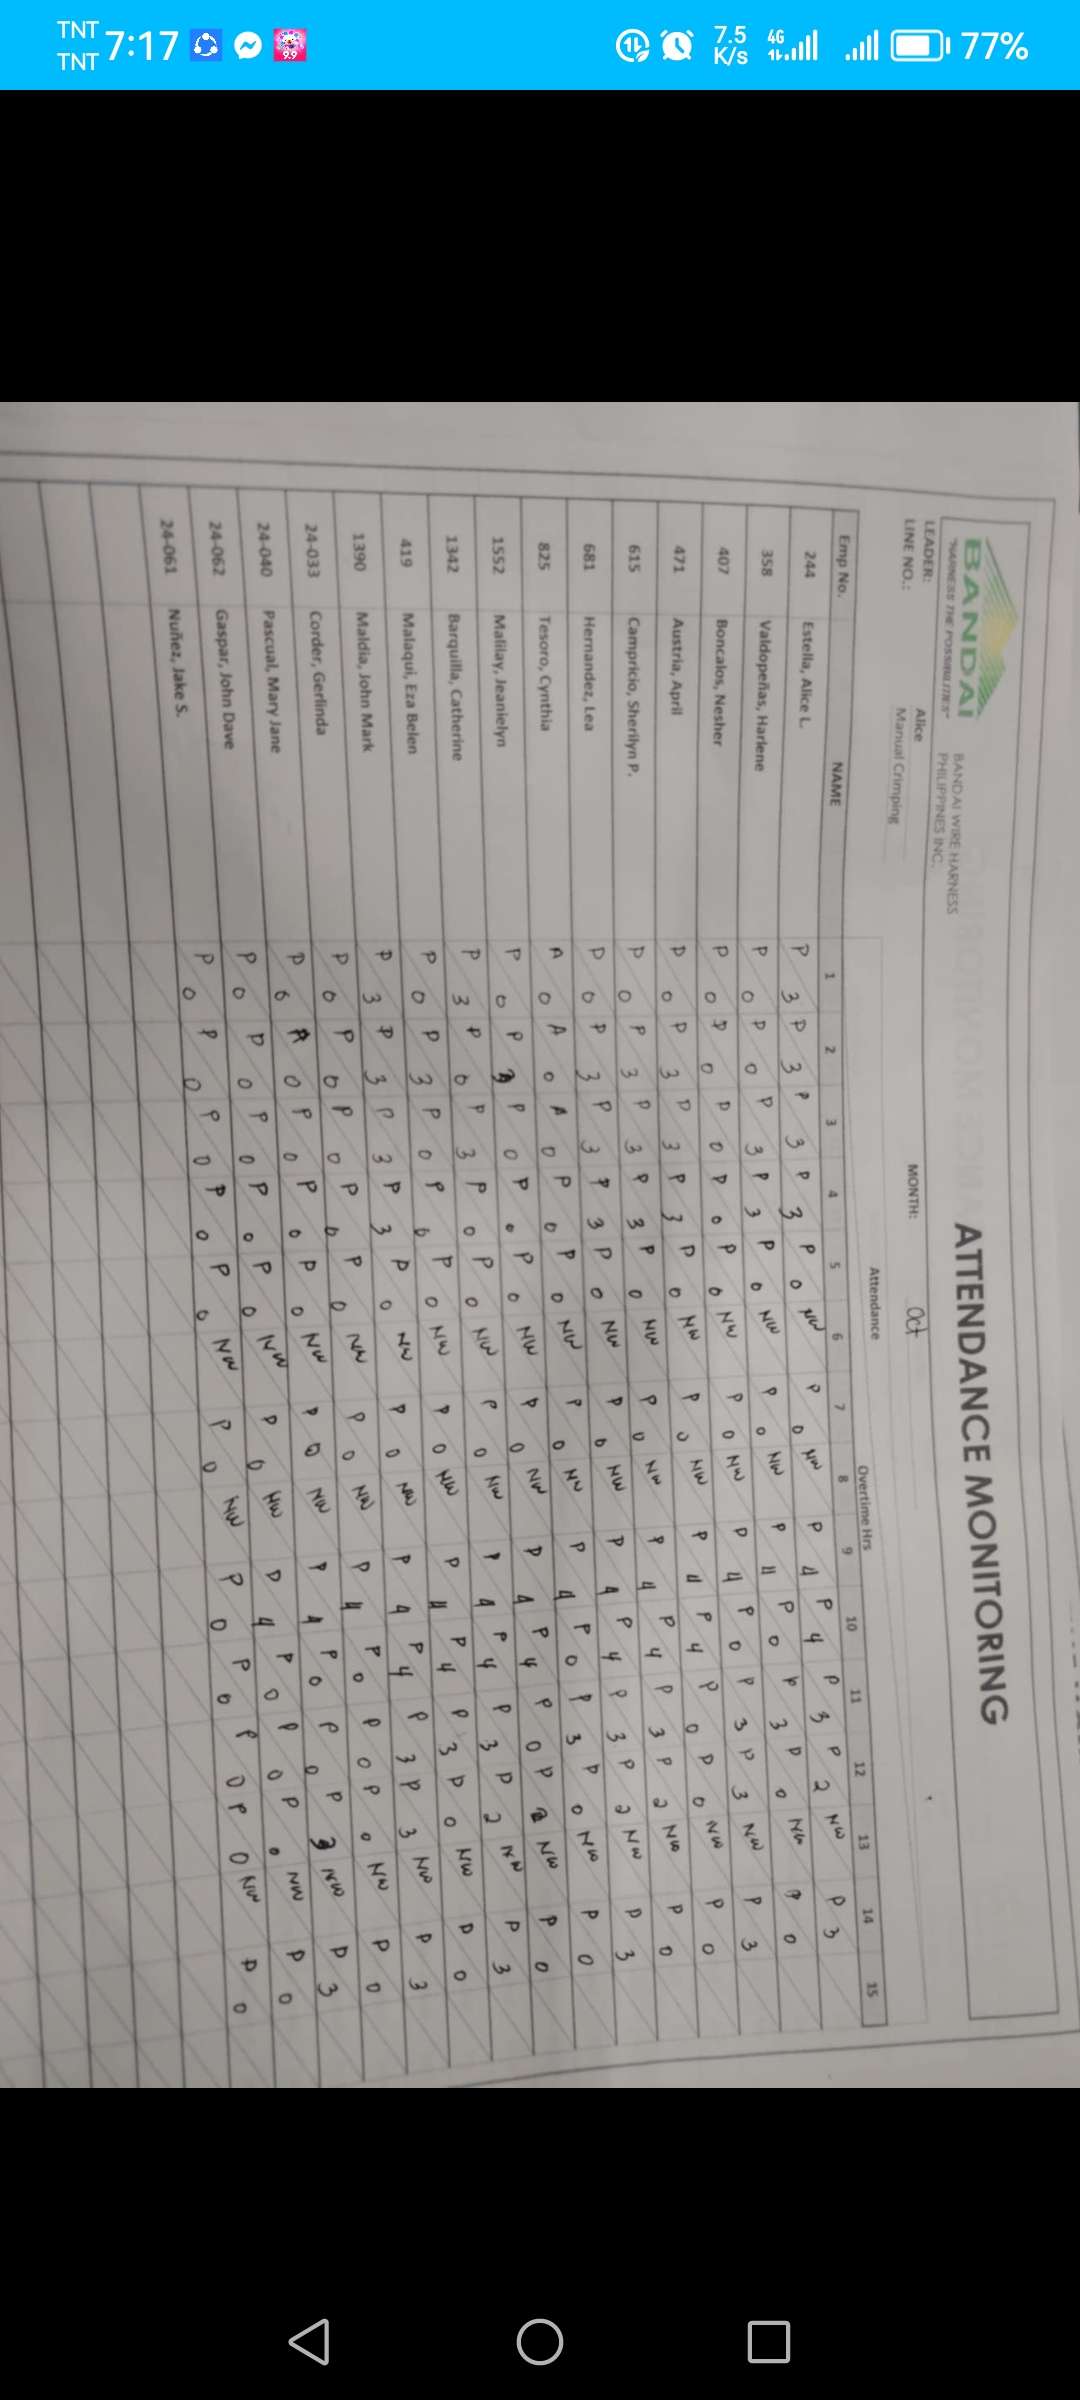 TNT
TNT 7:17 9.9 7.5 K/s 4G 77%
BANDAI
"HARNESS THE POSSIBILITIES"
BANDAI WIRE HARNESS
PHILIPPINES INC.
ATTENDANCE MONITORING
LEADER: Alice MONTH: Oct
LINE NO.: Manual Crimping
Attendance Overtime Hrs
Emp No. NAME 1 2 3 4 5 6 7 8 9 10 11 12 13 14 15
244 Estella, Alice L. P 3 P 3 P 3 P 3 P 0 NW P 0 NW P 4 P 4 P 3 P 2 NW P 3
358 Valdopeñas, Harlene P 0 P 0 P 3 P 3 P 0 NW P 0 NW P 4 P 0 P 3 P 0 NW P 0
407 Boncalos, Nesher P 0 P 0 P 0 P 0 P 0 NW P 0 NW P 4 P 0 P 3 P 3 NW P 3
471 Austria, April P 0 P 3 P 3 P 3 P 0 NW P 0 NW P 4 P 4 P 0 P 0 NW P 0
615 Campricio, Sherilyn P. P 0 P 3 P 3 P 3 P 0 NW P 0 NW P 4 P 4 P 3 P 2 NW P 0
681 Hernandez, Lea P 0 P 3 P 3 P 3 P 0 NW P 0 NW P 4 P 4 P 3 P 2 NW P 3
825 Tesoro, Cynthia A 0 A 0 A 0 P 0 P 0 NW P 0 NW P 4 P 0 P 3 P 0 NW P 0
1552 Malilay, Jeanielyn P 0 P 3 P 0 P 0 P 0 NW P 0 NW P 4 P 4 P 0 P 2 NW P 0
1342 Barquilla, Catherine P 3 P 0 P 3 P 0 P 0 NW P 0 NW P 4 P 4 P 3 P 2 NW P 3
419 Malaqui, Eza Belen P 0 P 3 P 0 P 0 P 0 NW P 0 NW P 4 P 4 P 3 P 0 NW P 0
1390 Maldia, John Mark P 3 P 3 P 3 P 3 P 0 NW P 0 NW P 4 P 4 P 3 P 3 NW P 3
24-033 Corder, Gerlinda P 0 P 0 P 0 P 0 P 0 NW P 0 NW P 4 P 0 P 0 P 0 NW P 0
24-040 Pascual, Mary Jane P 0 A 0 P 0 P 0 P 0 NW P 0 NW P 4 P 0 P 0 P 3 NW P 3
24-062 Gaspar, John Dave P 0 P 0 P 0 P 0 P 0 NW P 0 NW P 4 P 0 P 0 P 0 NW P 0
24-061 Nuñez, Jake S. P 0 P 0 P 0 P 0 P 0 NW P 0 NW P 0 P 0 P 0 P 0 NW P 0